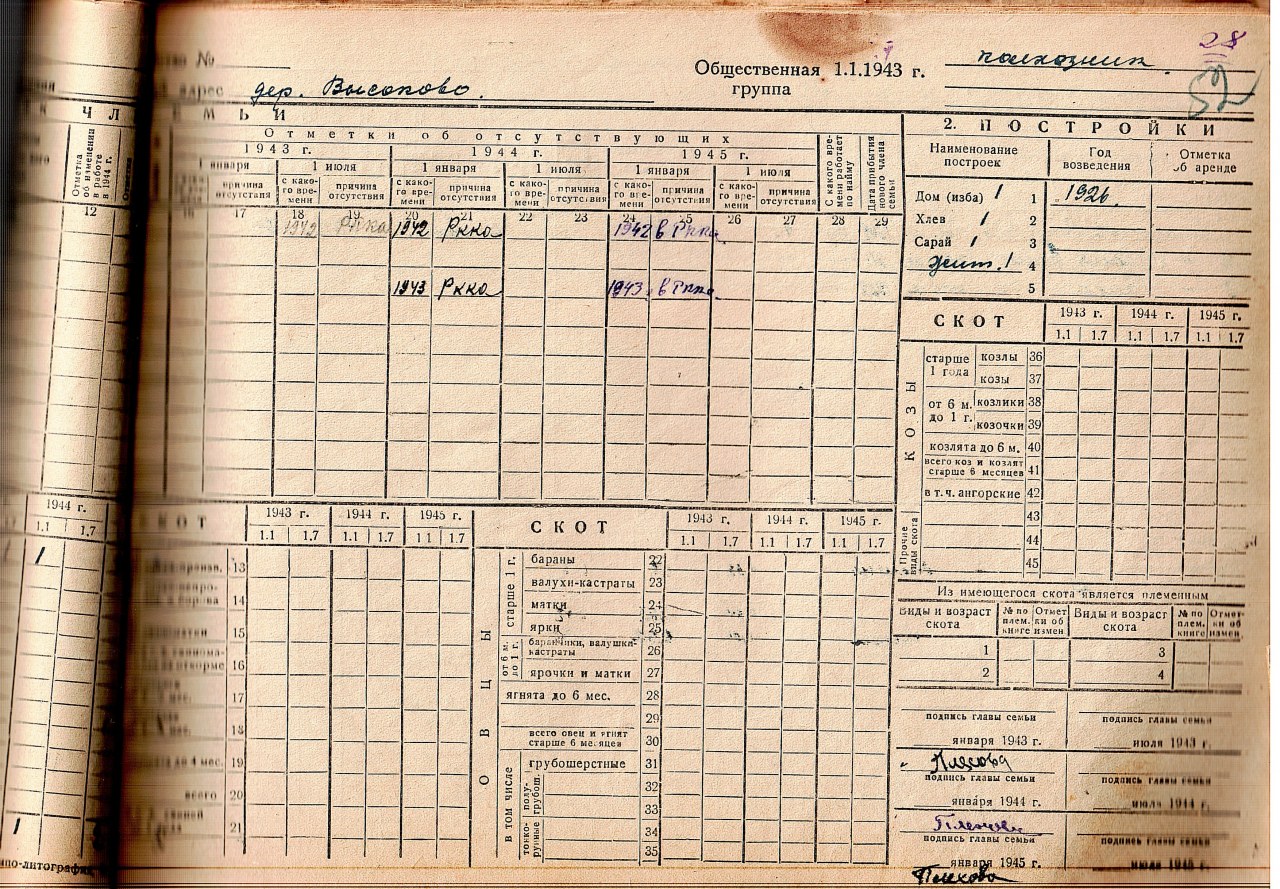 28
52
№
Общественная 1.1.1943 г. колхозник.
группа
адрес дер. Высоково.
Ч Л
М Ь И
Отметки об отсутствующих
1943 г. 1944 г. 1945 г.
1 января 1 июля 1 января 1 июля 1 января 1 июля
Отметка об изменении в работе в 1944 г.
причина отсутствия
с какого времени причина отсутствия с какого времени причина отсутствия с какого времени причина отсутствия с какого времени причина отсутствия с какого времени причина отсутствия
С какого времени работает по найму
Дата прибытия нового члена семьи
12 16 17 18 19 20 21 22 23 24 25 26 27 28 29
1942 Ркка 1942 Ркка 1942 в Ркка
1943 Ркка 1943 в Ркка
2. ПОСТРОЙКИ
Наименование построек Год возведения Отметка об аренде
Дом (изба) 1 1 1926.
Хлев 1 2
Сарай 1 3
4
5
СКОТ 1943 г. 1944 г. 1945 г.
1.1 1.7 1.1 1.7 1.1 1.7
КОЗЫ
старше 1 года козлы 36
козы 37
от 6 м. до 1 г. козлики 38
козочки 39
козлята до 6 м. 40
всего коз и козлят старше 6 месяцев 41
в т. ч. ангорские 42
Прочие виды скота
43
44
45
1944 г.
1.1 1.7
1
1
СКОТ 1943 г. 1944 г. 1945 г.
1.1 1.7 1.1 1.7 1 1 1.7
13
14
15
16
17
18
до 4 мес. 19
всего 20
21
СКОТ 1943 г. 1944 г. 1945 г.
1.1 1.7 1.1 1.7 1.1 1.7
ОВЦЫ
старше 1 г.
бараны 22
валухи-кастраты 23
матки 24
ярки 25
от 6 м. до 1 г.
баранчики, валушки-кастраты 26
ярочки и матки 27
ягнята до 6 мес. 28
29
всего овец и ягнят старше 6 месяцев 30
в том числе
грубошерстные 31
полугрубош. 32
33
тонкорунные 34
35
Из имеющегося скота является племенным
Виды и возраст скота № по плем. книге Отметки об измен. Виды и возраст скота № по плем. книге Отметки об измен.
1 3
2 4
подпись главы семьи подпись главы семьи
января 1943 г. июля 1943 г.
Плехова
подпись главы семьи подпись главы семьи
января 1944 г. июля 1944 г.
Плехова
подпись главы семьи подпись главы семьи
января 1945 г. июля 1945 г.
Плехова